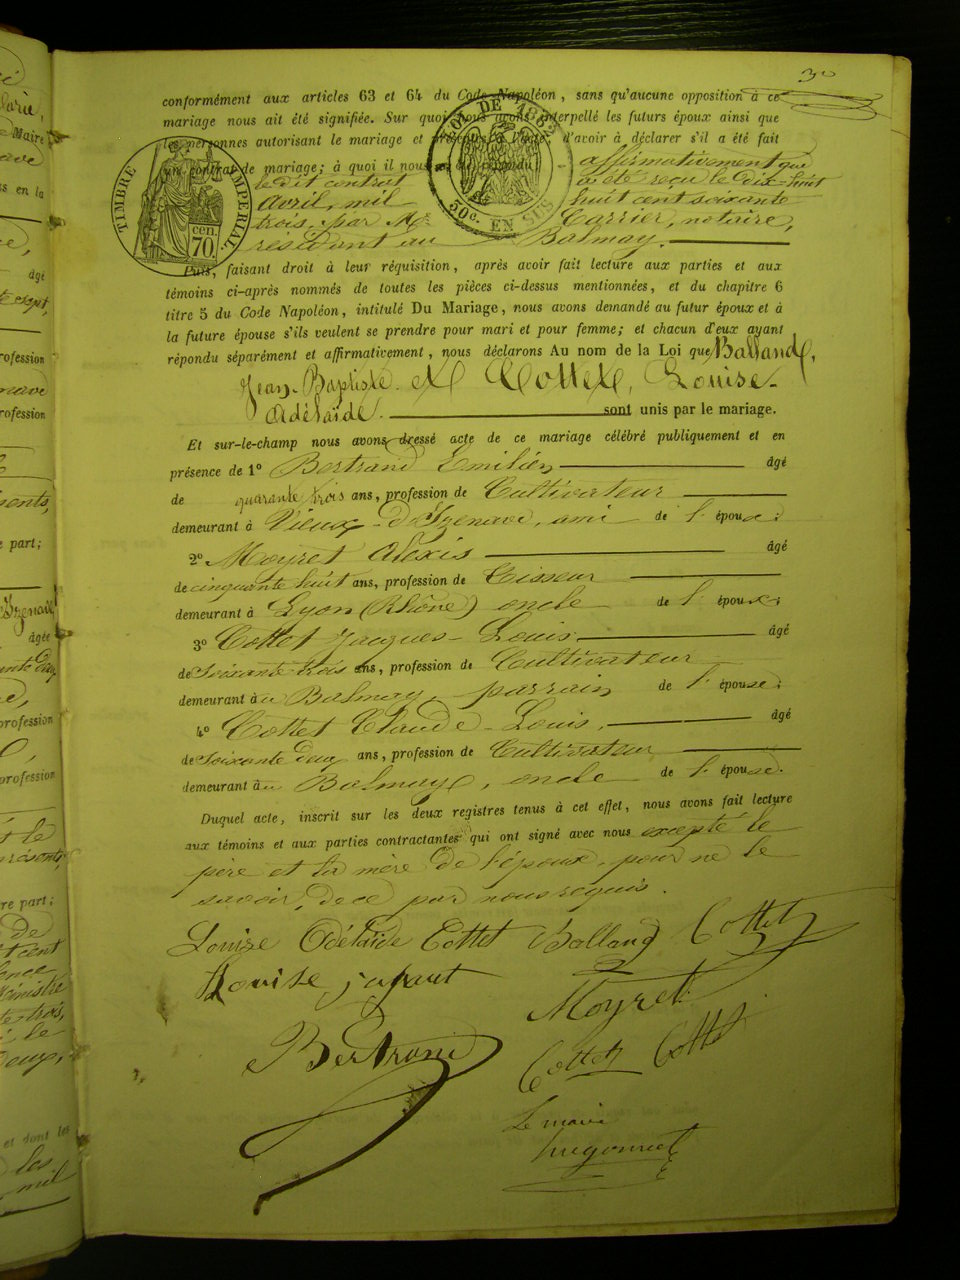 30
conformément aux articles 63 et 64 du Code Napoléon, sans qu'aucune opposition à ce
mariage nous ait été signifiée. Sur quoi nous avons interpellé les futurs époux ainsi que
les personnes autorisant le mariage et présentes à l'acte, d'avoir à déclarer s'il a été fait
un contrat de mariage; à quoi il nous a été répondu affirmativement que
le dit contrat a été reçu le dix-huit
avril, mil huit cent soixante
trois, par Me Carrier, notaire,
résidant au Balmay.
TIMBRE IMPERIAL.
cen. 70.
LOI DE 1862
50c. EN SUS
Puis, faisant droit à leur réquisition, après avoir fait lecture aux parties et aux
témoins ci-après nommés de toutes les pièces ci-dessus mentionnées, et du chapitre 6
titre 5 du Code Napoléon, intitulé Du Mariage, nous avons demandé au futur époux et à
la future épouse s'ils veulent se prendre pour mari et pour femme; et chacun d'eux ayant
répondu séparément et affirmativement, nous déclarons Au nom de la Loi que Balland,
Jean-Baptiste et Cottet, Louise-
Adélaïde. sont unis par le mariage.
Et sur-le-champ nous avons dressé acte de ce mariage célébré publiquement et en
présence de 1° Bertrand Emilien âgé
de quarante trois ans, profession de Cultivateur
demeurant à Vieux-d'Izenave, ami de l'époux;
2° Moyret Alexis âgé
de cinquante huit ans, profession de Tisseur
demeurant à Lyon (Rhône) oncle de l'époux;
3° Cottet Jacques-Louis âgé
de soixante trois ans, profession de Cultivateur
demeurant au Balmay, parrain de l'épouse;
4° Cottet Claude-Louis, âgé
de soixante deux ans, profession de Cultivateur
demeurant au Balmay, oncle de l'épouse.
Duquel acte, inscrit sur les deux registres tenus à cet effet, nous avons fait lecture
aux témoins et aux parties contractantes qui ont signé avec nous excepté le
père et la mère de l'époux, pour ne le
savoir, de ce par nous requis.
Louise Adélaïde Cottet Balland Cottet
Louise Moyret
Bertrand Cottet Cottet
Le maire
hugonnet